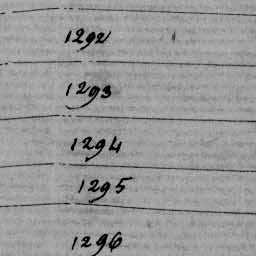 1292
1293
1294
1295
1296